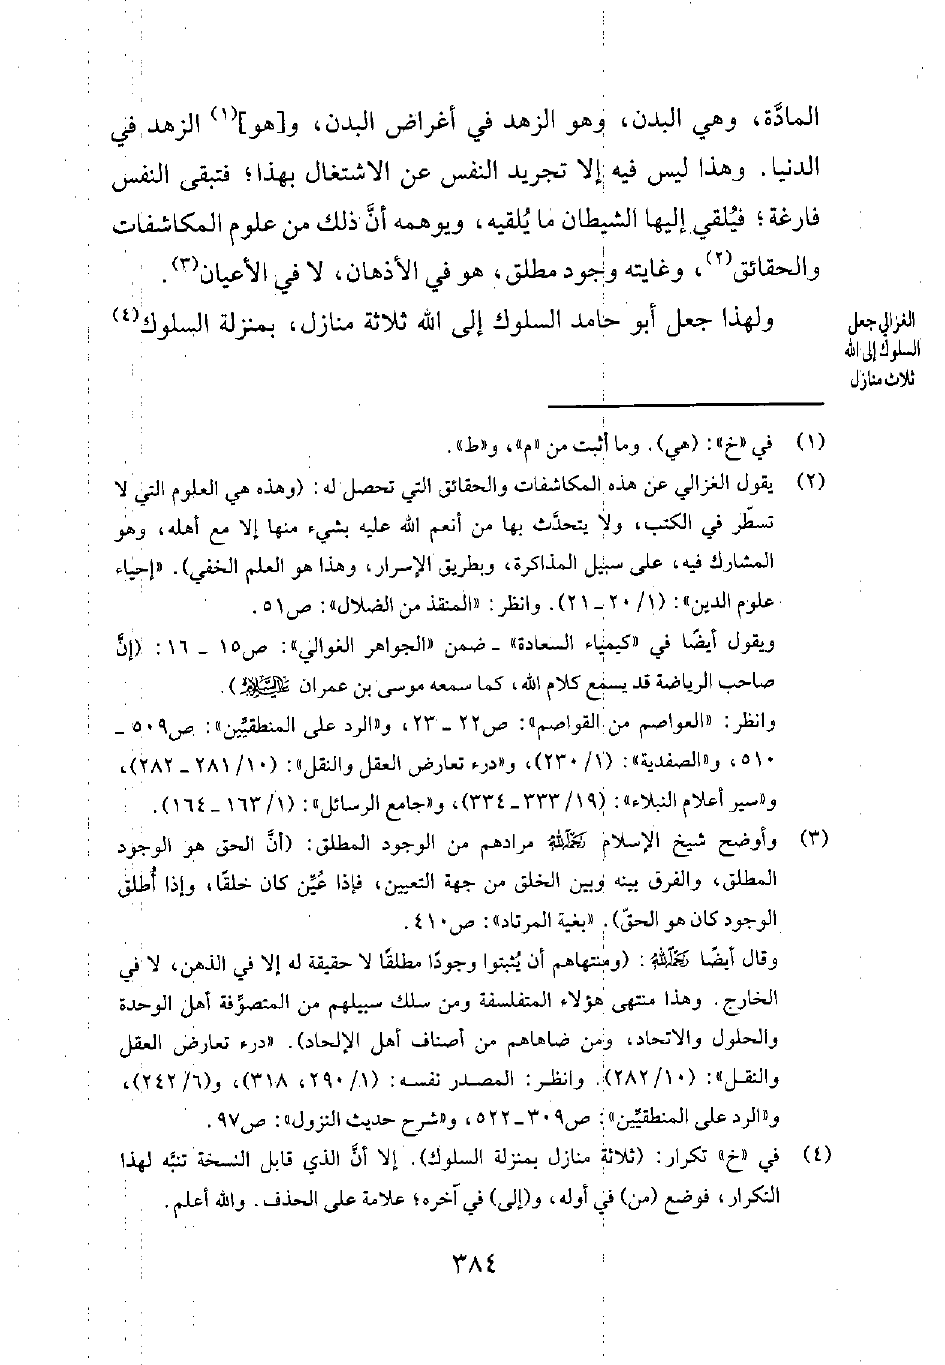 المادَّة، وهي البدن، وهو الزهد في أغراض البدن، و[هو](١) الزهد في
الدنيا. وهذا ليس فيه إلا تجريد النفس عن الاشتغال بهذا؛ فتبقى النفس
فارغة؛ فيُلقي إليها الشيطان ما يُلقيه، ويوهمه أنَّ ذلك من علوم المكاشفات
والحقائق(٢)، وغايته وجود مطلق، هو في الأذهان، لا في الأعيان(٣).
ولهذا جعل أبو حامد السلوك إلى الله ثلاثة منازل، بمنزلة السلوك(٤)
الغزالي جعل
السلوك إلى الله
ثلاث منازل
(١) في «خ»: (هي). وما أثبت من «م»، و«ط».
(٢) يقول الغزالي عن هذه المكاشفات والحقائق التي تحصل له: (وهذه هي العلوم التي لا
تسطّر في الكتب، ولا يتحدَّث بها من أنعم الله عليه بشيء منها إلا مع أهله، وهو
المشارك فيه، على سبيل المذاكرة، وبطريق الإسرار، وهذا هو العلم الخفي). «إحياء
علوم الدين»: (١/ ٢٠ ـ ٢١). وانظر: «المنقذ من الضلال»: ص٥١.
ويقول أيضًا في «كيمياء السعادة» ـ ضمن «الجواهر الغوالي»: ص١٥ ـ ١٦: (إنَّ
صاحب الرياضة قد يسمع كلام الله، كما سمعه موسى بن عمران عليه السلام).
وانظر: «العواصم من القواصم»: ص٢٢ ـ ٢٣، و«الرد على المنطقيِّين»: ص٥٠٩ ـ
٥١٠، و«الصفدية»: (١/ ٢٣٠)، و«درء تعارض العقل والنقل»: (١٠/ ٢٨١ ـ ٢٨٢)،
و«سير أعلام النبلاء»: (١٩/ ٣٣٣ ـ ٣٣٤)، و«جامع الرسائل»: (١/ ١٦٣ ـ ١٦٤).
(٣) وأوضح شيخ الإسلام رحمه الله مرادهم من الوجود المطلق: (أنَّ الحق هو الوجود
المطلق، والفرق بينه وبين الخلق من جهة التعيين، فإذا عُيِّن كان خلقًا، وإذا أُطلق
الوجود كان هو الحقّ). «بغية المرتاد»: ص٤١٠.
وقال أيضًا رحمه الله: (ومنتهاهم أن يُثبتوا وجودًا مطلقًا لا حقيقة له إلا في الذهن، لا في
الخارج. وهذا منتهى هؤلاء المتفلسفة ومن سلك سبيلهم من المتصوِّفة أهل الوحدة
والحلول والاتحاد، ومن ضاهاهم من أصناف أهل الإلحاد). «درء تعارض العقل
والنقل»: (١٠/ ٢٨٢). وانظر: المصدر نفسه: (١/ ٢٩٠، ٣١٨)، و(٦/ ٢٤٢)،
و«الرد على المنطقيِّين»: ص٣٠٩ ـ ٥٢٢، و«شرح حديث النزول»: ص٩٧.
(٤) في «خ» تكرار: (ثلاثة منازل بمنزلة السلوك). إلا أنَّ الذي قابل النسخة تنبَّه لهذا
التكرار، فوضع (من) في أوله، و(إلى) في آخره؛ علامة على الحذف. والله أعلم.
٣٨٤